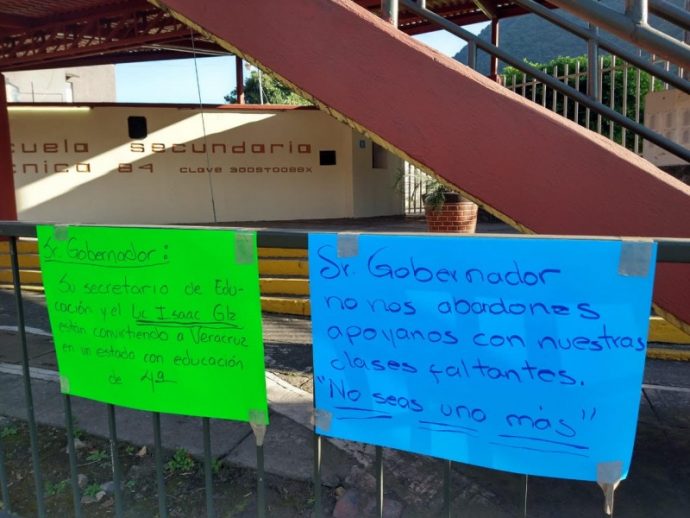 cuela secundaria
cnica 84 CLAVE 30DST0085X
Sr. Gobernador:
Su secretario de Edu-
cación y el Lic Isaac Glz
están convirtiendo a Veracruz
en un estado con educación
de 4ª
Sr. Gobernador
no nos abardones
apoyanos con nuestras
clases faltantes.
"No seas uno más"